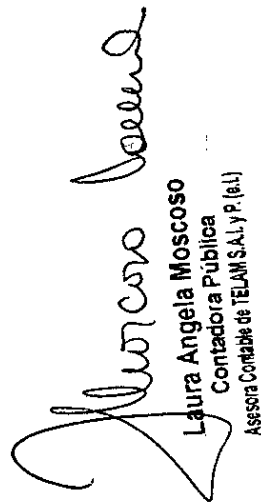 Moscoso Laura
Laura Angela Moscoso
Contadora Pública
Asesora Contable de TELAM S.A.I. y P. (e.l.)